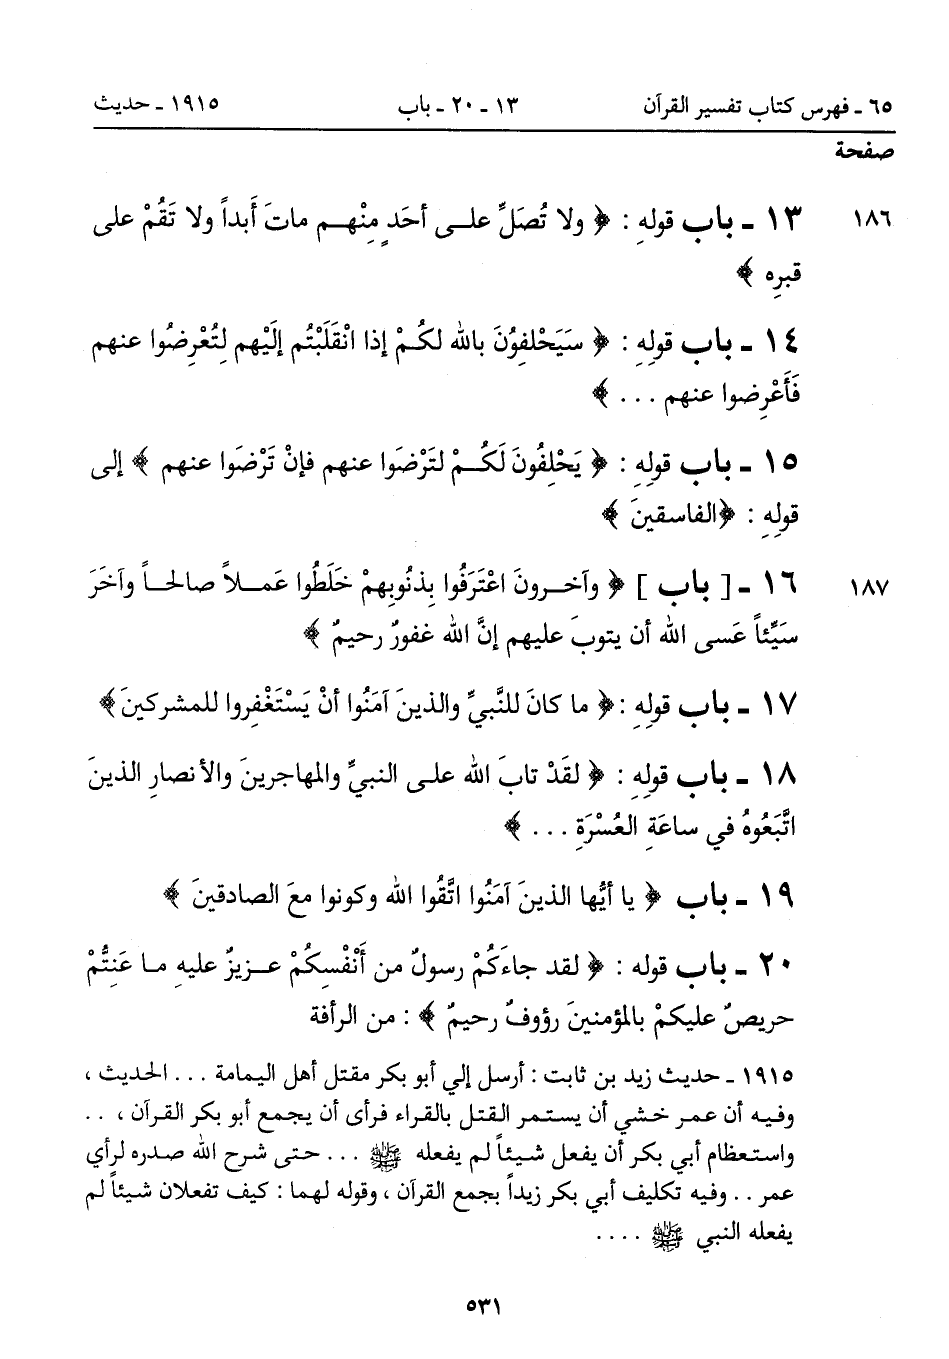 ٦٥ ـ فهرس كتاب تفسير القرآن ١٣ ـ ٢٠ ـ باب ١٩١٥ ـ حديث
صفحة
١٨٦ ١٣ ـ باب قولِهِ : ﴿ ولا تُصَلِّ علـى أحَدٍ مِنْهـم ماتَ أَبداً ولا تَقُمْ على
قبرِهِ ﴾
١٤ ـ باب قولِهِ : ﴿ سَيَحْلفِوُنَ بالله لكُمْ إذا انْقَلَبْتُم إلَيْهم لِتُعْرِضُوا عنهم
فَأَعْرِضوا عنهم . . . ﴾
١٥ ـ باب قولِهِ : ﴿ يَحْلِفُونَ لَكُـمْ لتَرْضَوا عنهم فإنْ تَرْضَوا عنهم ﴾ إلى
قولِهِ : ﴿الفاسقينَ ﴾
١٨٧ ١٦ ـ [ باب ] ﴿ وآخـرونَ اعْتَرَفُوا بِذنُوبِهمْ خَلَطُوا عَمـلاً صالحـاً وآخَرَ
سَيِّئاً عَسى الله أن يتوبَ عليهم إنَّ الله غفورٌ رحيمٌ ﴾
١٧ ـ باب قولِهِ :﴿ ما كانَ للنَّبيِّ والذينَ آمَنُوا أنْ يَسْتَغْفِروا للمشركينَ﴾
١٨ ـ باب قولِهِ : ﴿ لقَدْ تابَ الله علـى النبيِّ والمهاجرينَ والأنصارِ الذينَ
اتَّبَعُوهُ في ساعَةِ العُسْرَةِ . . . ﴾
١٩ ـ باب ﴿ يا أيُّها الذينَ آمَنُوا اتَّقُوا الله وكونوا معَ الصادقينَ ﴾
٢٠ ـ باب قوله : ﴿ لقد جاءَكُمْ رسولٌ من أَنْفْسِكُمْ عـزيزٌ عليهِ مـا عَنِتُّمْ
حريصٌ عليكمْ بالمؤمنينَ رؤوفٌ رحيمٌ ﴾ : من الرأفة
١٩١٥ ـ حديث زيد بن ثابت : أرسل إلي أبو بكر مقتل أهل اليمامة . . . الحديث ،
وفيه أن عمر خشي أن يستمر القتل بالقراء فرأى أن يجمع أبو بكر القرآن ، . .
واستعظام أبي بكر أن يفعل شيئاً لم يفعله ﷺ . . . حتى شرح الله صدره لرأي
عمر . . وفيه تكليف أبي بكر زيداً بجمع القرآن ، وقوله لهما : كيف تفعلان شيئاً لم
يفعله النبي ﷺ . . . .
٥٣١